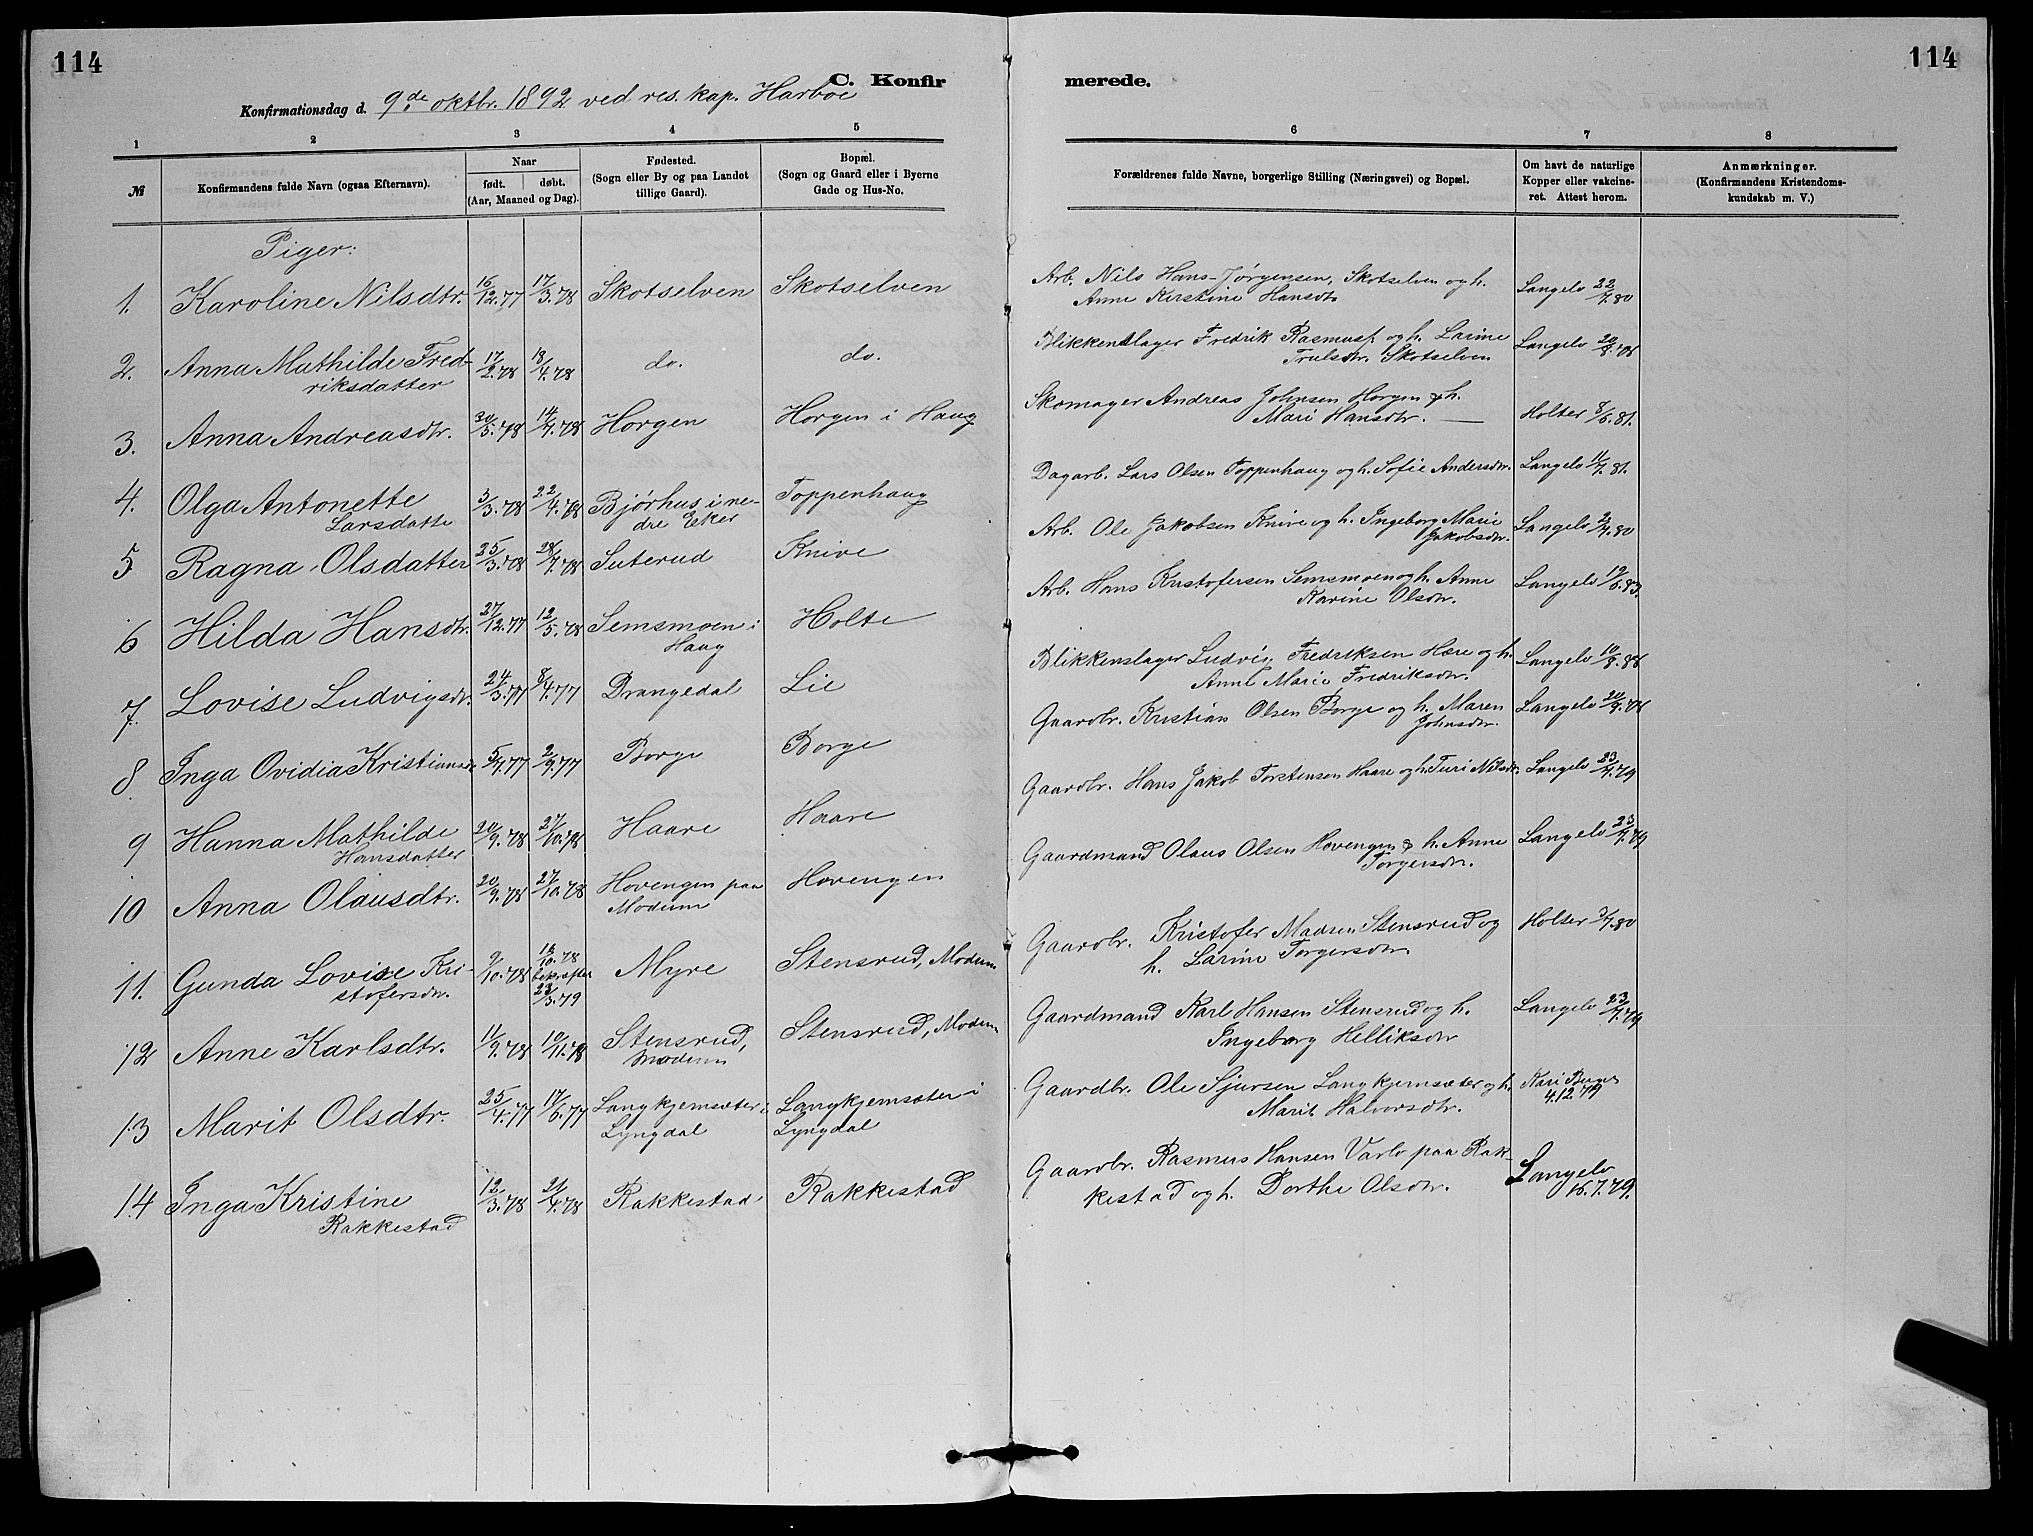 114
114
C. Konfir
merede.
Konfirmationsdag d. 9de oktbr. 1892 ved res. kap. Harboe
1 2 3 4 5
6 7 8
№
Konfirmandens fulde Navn (ogsaa Efternavn).
Naar
født. døbt.
(Aar, Maaned og Dag).
Fødested.
(Sogn eller By og paa Landet
tillige Gaard).
Bopæl.
(Sogn og Gaard eller i Byerne
Gade og Hus-No.
Forældrenes fulde Navne, borgerlige Stilling (Næringsvei) og Bopæl.
Om havt de naturlige
Kopper eller vakcine-
ret. Attest herom.
Anmærkninger.
(Konfirmandens Kristendoms-
kundskab m. V.)
Piger:
1. Karoline Nilsdtr. 16/12.77 17/3.78 Skotselven Skotselven
Arb. Nils Hans-Jørgensen, Skotselven og h. Langelo 22/7.80
Anne Kirstine Hansdtr
2. Anna Mathilde Fred- 17/2.78 18/4.78 do. do.
riksdatter
Blikkenslager Fredrik Rasmusf. og h. Larine Langelo
Trulsdtr. Skotselven
3. Anna Andreasdtr. 30/5.78 14/7.78 Horgen Horgen i Haug
Skomager Andreas Johnsen Horgen & h.
Mari Hansdtr. — Holter 8/6.81.
4. Olga Antonette 3/3.78 22/4.78 Bjørhus i ne- Toppenhaug
Larsdatte dre Eker
Dagarb. Lars Olsen Toppenhaug og h. Sofie Andersdtr. Langelo 11/7.81.
5 Ragna Olsdatter 25/3.78 28/7.78 Suterud Knive
Arb. Ole Jakobsen Knive og h. Ingeborg Marie Langelo
Jakobsdtr.
6 Hilda Hansdtr. 27/12.77 12/5.78 Semsmoen i Holte
Haug
Arb. Hans Kristofersen Semsmoen og h. Anne Langelo 19/6.83.
Karine Olsdtr.
7. Lovise Ludvigsdtr. 24/3.77 8/4.77 Drangedal Lie
Blikkenslager Ludvig Fredriksen Hære og h. Langelo 10/8.88
Anne Marie Fredriksdtr.
8 Inga Ovidia Kristiansdtr 5/7.77 2/9.77 Borge Borge
Gaardbr. Kristian Olsen Borge og h. Maren Langelo
Johnsdtr.
9 Hanna Mathilde 20/9.78 27/10.78 Haare Haare
Hansdatter
Gaardbr. Hans Jakob Torstensen Haare og h. Turi Nilsdtr. Langelo 23/7.79
10 Anna Olausdtr. 20/9.78 27/10.78 Hovengen paa Hovengen
Modum
Gaardmand Olaus Olsen Hovengen & h. Anne Langelo 23/7.79
Torgersdtr.
11. Gunda Lovise Kri- 9/10.78 16/10.78 Myre Stensrud, Modum
stofersdtr. bekræftet
23/3.79
Gaardbr. Kristofer Madsen Stensrud og Holter 3/7.80
h. Larine Torgersdtr.
12 Anne Karlsdtr. 11/9.78 10/11.78 Stensrud, Stensrud, Modum
Modum
Gaardmand Karl Hansen Stensrud og h. Langelo 23/7.79
Ingeborg Helliksdtr
13 Marit Olsdtr. 25/4.77 17/6.77 Langkjernsæter i Langkjernsæter i
Lyngdal Lyngdal
Gaardbr. Ole Sjursen Langkjernsæter og h. Kari
Marit Halvorsdtr. 4.12.79
14 Inga Kristine 12/3.78 21/4.78 Rakkestad Rakkestad
Rakkestad
Gaardbr. Rasmus Hansen Varlo paa Rak- Langelo
kestad og h. Dorthe Olsdtr. 16.7.79.